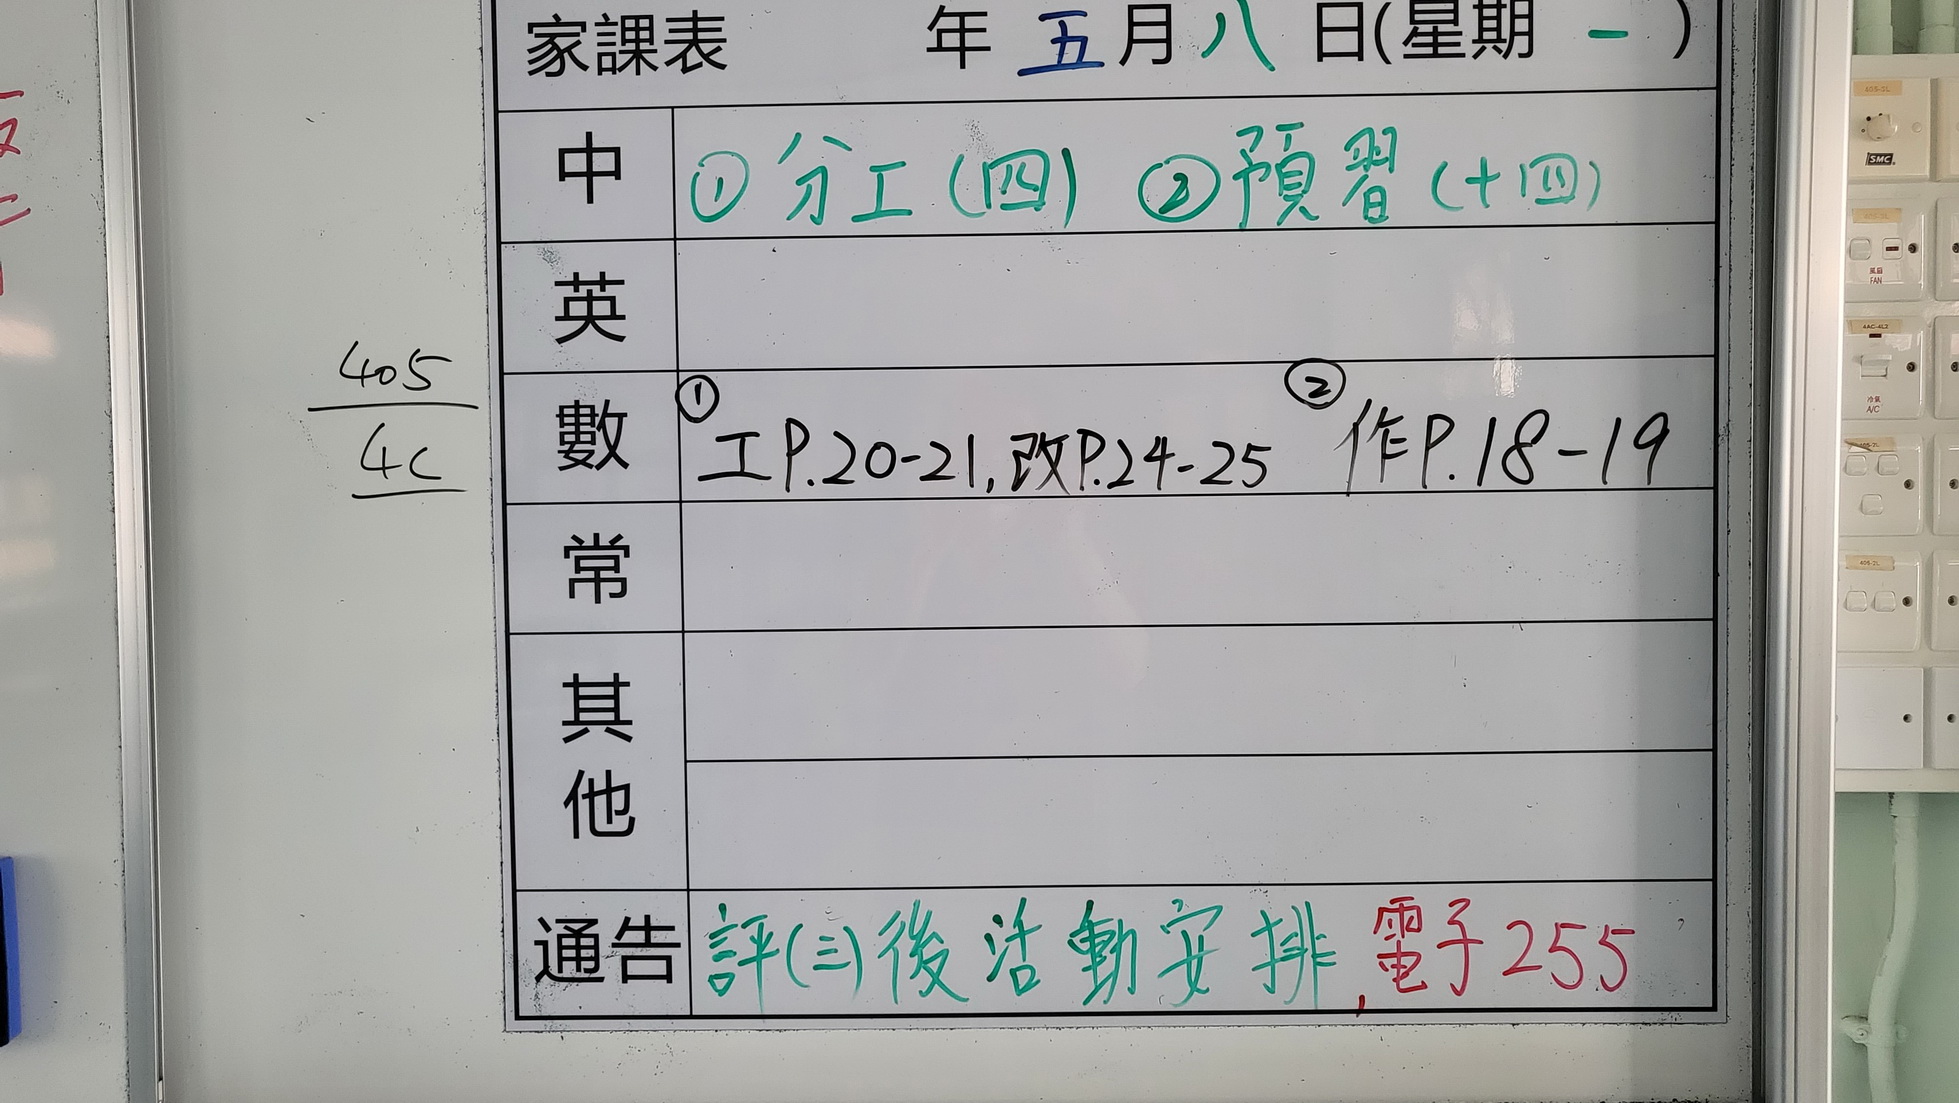 家課表 年 五 月 八 日(星期 一 )
中 ① 分工(四) ② 預習(十四)
英
405
4C
數 ① 工P.20-21, 改P.24-25 ② 作P.18-19
常
其他
通告 評(三)後活動安排, 電子255
SMC
風扇
FAN
4AC-4L2
冷氣
A/C